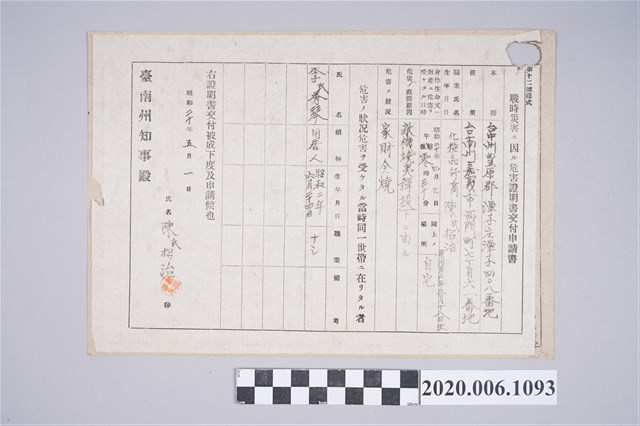 第十二號樣式
戰時災害ニ因ル危害證明書交付申請書
本籍 台中州豊原郡潭子庄潭子四〇八番地
住所 台南州台南市西門町七丁目六一番地
職業氏名 化粧品行商 陳氏招治
生年月日
身体生命又ハ財產ニ危害ヲ受ケタル日時 昭和二十年 午 零時三十分 同上ノ場所 自宅
危害ノ直接原因 敵機燒夷彈投下ニ由ル
危害ノ狀況 家財全燒
危害ノ狀況危害ヲ受ケタル當時同一世帶ニ在リタル者
氏名 續柄 生年月日 職業 備考
李氏春琴 同居人 昭和二年六月二十四日 ナシ
右證明書交付被成下度及申請候也
昭和二十年五月一日
氏名 陳氏招治 ㊞
臺南州知事殿
2020.006.1093